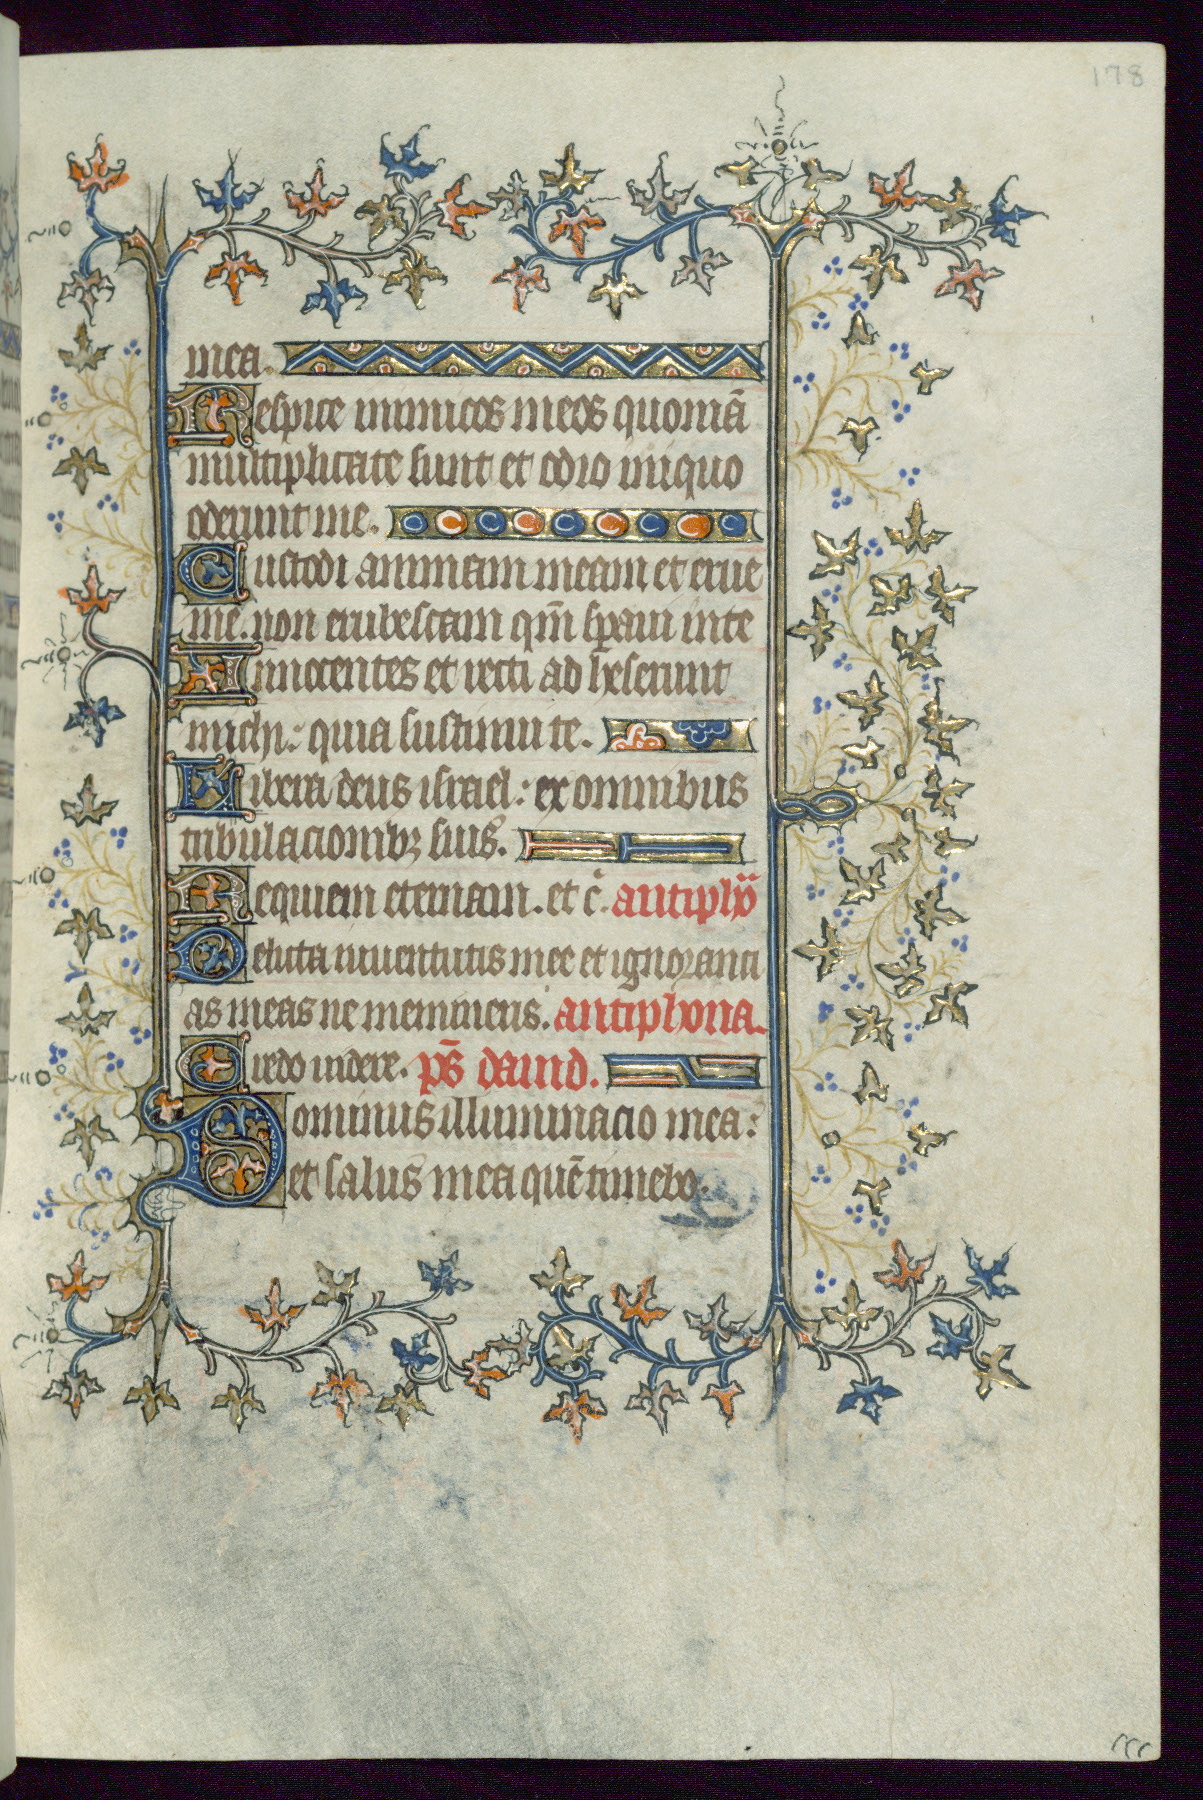 178
mea.
Respice inimicos meos quoniā
multiplicate sunt et odio iniquo
oderunt me.
Custodi animam meam et erue
me. non erubescam qm̄ sp̱aui in te
Innocentes et recti adheserunt
michi: quia sustinui te.
Libera deus israel: ex omnibus
tribulacionibꝫ suis.
Requiem eternam. et c̄. antiph̄
Delicta iuuentutis mee et ignoranti
as meas ne memineris. antiphona.
Credo uidere. ps̄ dauid.
Dominus illuminacio mea:
et salus mea quē timebo.